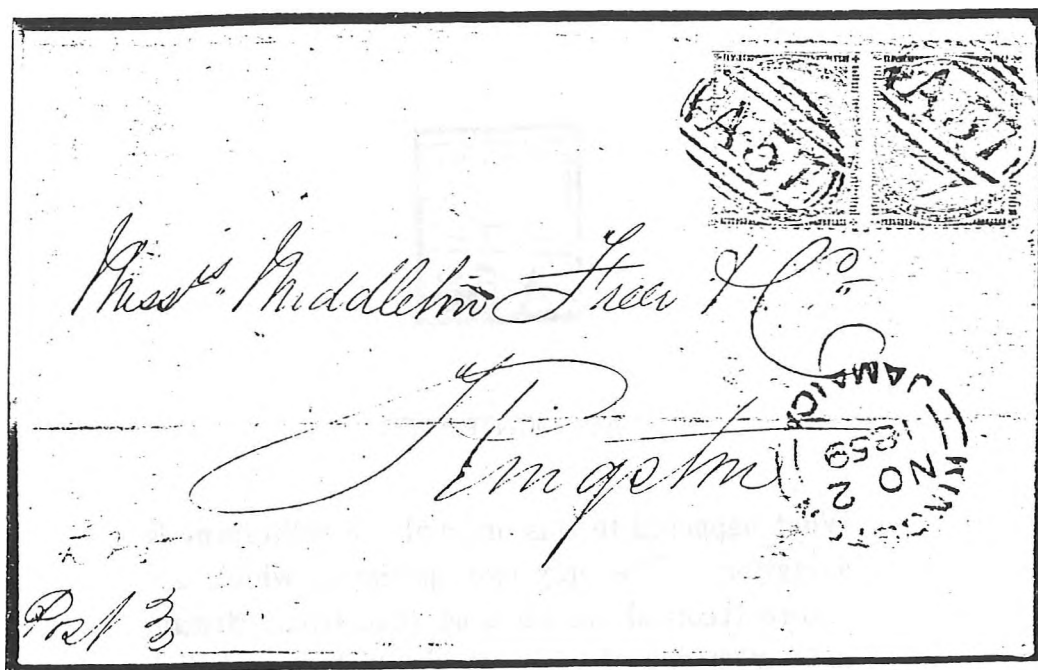 A51 A51
Messrs. Middleton Freer & Co.
Kingston
KINGSTON JAMAICA
NO 2
1859
Post